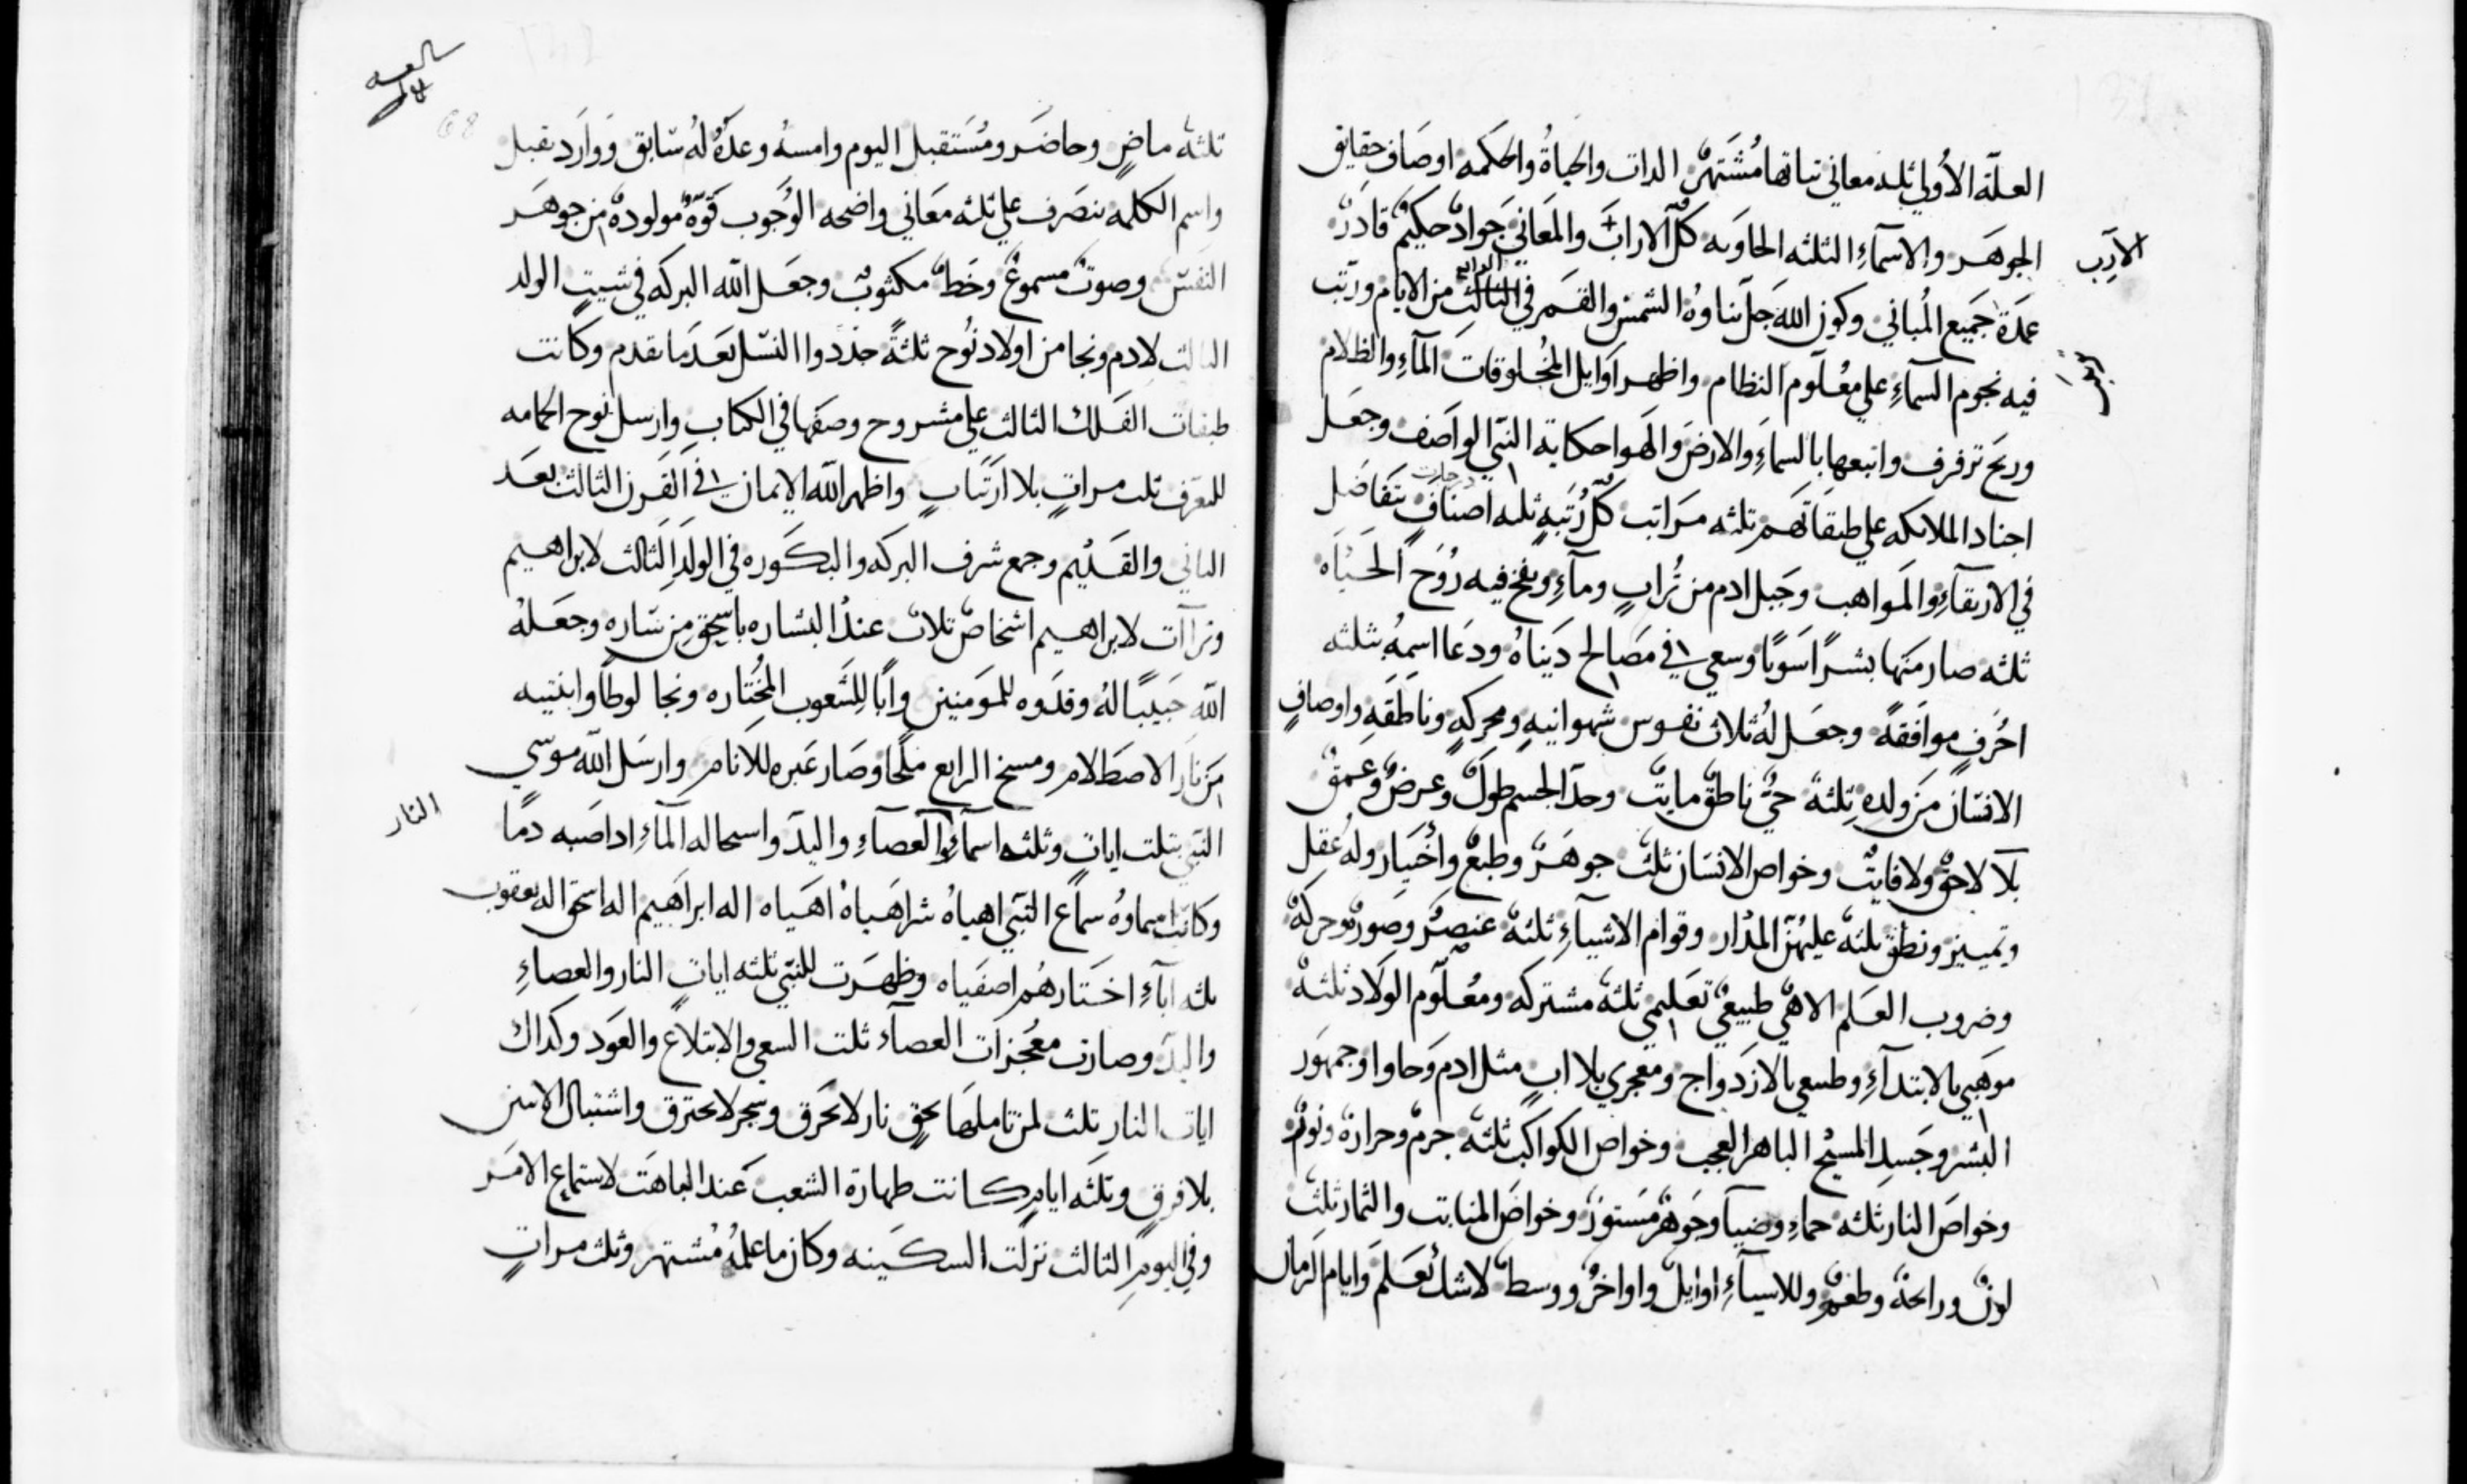 العلّة الأولي ثلثه معاني نباتها مُشتهرٌ الدات والحياةُ والحكمه اوصَاف حقايق
الجوهَر والاسمآءِ الثلثه الحاويه كلّ الاراب والمَعَاني جَوادٌ حكيمٌ قادرٌ
الارَب
عَمدَة جَميع المُباني وكون الله جَلّ ثناوهُ الشمس والقَمر في الرابع من الايام ورتب
فيه نجوم السمآءِ علي معُلوم النظام واظهر اَوايل المخُلوقات المآءِ والظلام
وريح ترفرف واتبعها بالسماءِ والارض والهَوا حكاية النبّي الواصَف وجعَل
اجناد الملايكه علي طبقاتَهم ثلثه مرَاتب كلّ رُتبهٍ ثلثه اصنافٍ درجات تتفاضَل
في الارتقآءِ والمَواهب وجَبل ادم من تُرابٍ ومآءٍ ونفخ فيه رُوحَ الحَيَاه
ثلثه صار منَها بشرًا سَويًا وسعي في مصَالح دَيناهُ ودَعَا اسمهُ بثلثه
احُرفٍ موافَقهً وجعَل لهُ ثلاث نفوس شهوانيهٍ ومحركهٍ وناطقَهٍ واوصافٍ
الانسَان مَن ولدهِ ثلثه حيٌّ ناطقٌ مايتٌ وحدّ الجسم طولٌ وعرضٌ وعَمقٌ
بلا لاحقٌ ولا فايتٌ وخواص الانسَان ثلثٌ جوهَرٌ وطبعٌ وأختيار وله عقل
وتمييز ونطق ثلثه عليهنّ المدَار وقوام الاشيآءِ ثلثه عنصرٌ وصَورةٌ وحركهٌ
وضروب العَلم الاهيٌ طبيعيٌ تعَليمي ثلثهٌ مشتركه ومعُلوم الولاد ثلثه
موَهبي بالابتدآءِ وطبيعي بالازدَواج ومعجري بلا ابٍ مثل ادم وَحاوا وجمهَور
البشر وجَسدِ المسيح الباهر العجب وخواص الكواكب ثلثه جرمٌ وحرارةٌ ونورٌ
وخواصَ النار ثلثه حماءِ وضيآ وجَوهرٌ مَستورٌ وخواصَ المنابت والثمار ثلثٌ
لونٌ ورايحةٌ وطعمٌ وللاشيآءِ اوايلٌ واواخرٌ ووسطٌ لاشك تُعَلم وايام الزمان
ثلثه ماضٍ وحاضَر ومُستَقبل اليوم وامسهُ وغدهُ لهُ سَابق وَوارَد يقبل
واسم الكلمه يتصَرف علي ثلثه معَاني واضحه الوُجوب قوّةٌ مولودةٌ من جوهَر
النفسَ وصوتٌ مسموعٌ وخَطٌ مكتوبٌ وجعَل الله البركه في شيت الولد
الثالت لادم ونجا من اولاد نُوح ثلثةً جدَدوا النسَل بَعدَ ما تقدم وكانت
طبقات الفَلك الثالث علي مشروح وصَفها في الكتاب وارسل نوح الحمامه
للتعرف ثلث مراتٍ بلا ارتَيابٍ واظهر الله الايمان في القرن الثالث بعَد
الثاني والقَديم وجمع شرف البركه والبكَوره في الولَدِ الثالث لابراهيم
وترآات لابراهيم اشخاص ثلاث عند البشاره باسحق من سَاره وجعَلهُ
الله حَبيبًا لهُ وقدَوه للمؤمنين وأبًا للشَعوب المخُتاره ونجا لوطًا وابنتيه
من نار الاصطَلام ومسخ الرابع ملحًا وصَار عَبره للانام وارسَل الله موسي
النبّي بثلت اياتٍ وثلثه اسمآءٍ العصآءِ واليدَ واستحاله المآءِ اد اصَبه دمًا
النار
وكانت اسماوهُ سماع النبّي اهياهْ شراهَياهْ اهَياه اله ابراهَيم اله اسحق اله يعقوب
ثلثه ابآءِ اختَارهُم اصفَياه وظهرَت للنبّي ثلثه اياتٍ النار والعصاءِ
واليدَ وصارت معُجزات العصآء ثلت السعي والابتلاع والعَود وكداك
ايات النار ثلث لمن تاملَهَا بحقٍ نار لا تحَرق وشجر لا يحترق واشتبال الاثنين
بلا فرقٍ وثلثَه ايامٍ كانت طهارة الشعب عَند الباهَت لاستماع الامَر
وفي اليومِ الثالث نزلت السكَينه وكان ما علمهُ مُشتهر وثلث مراتٍ